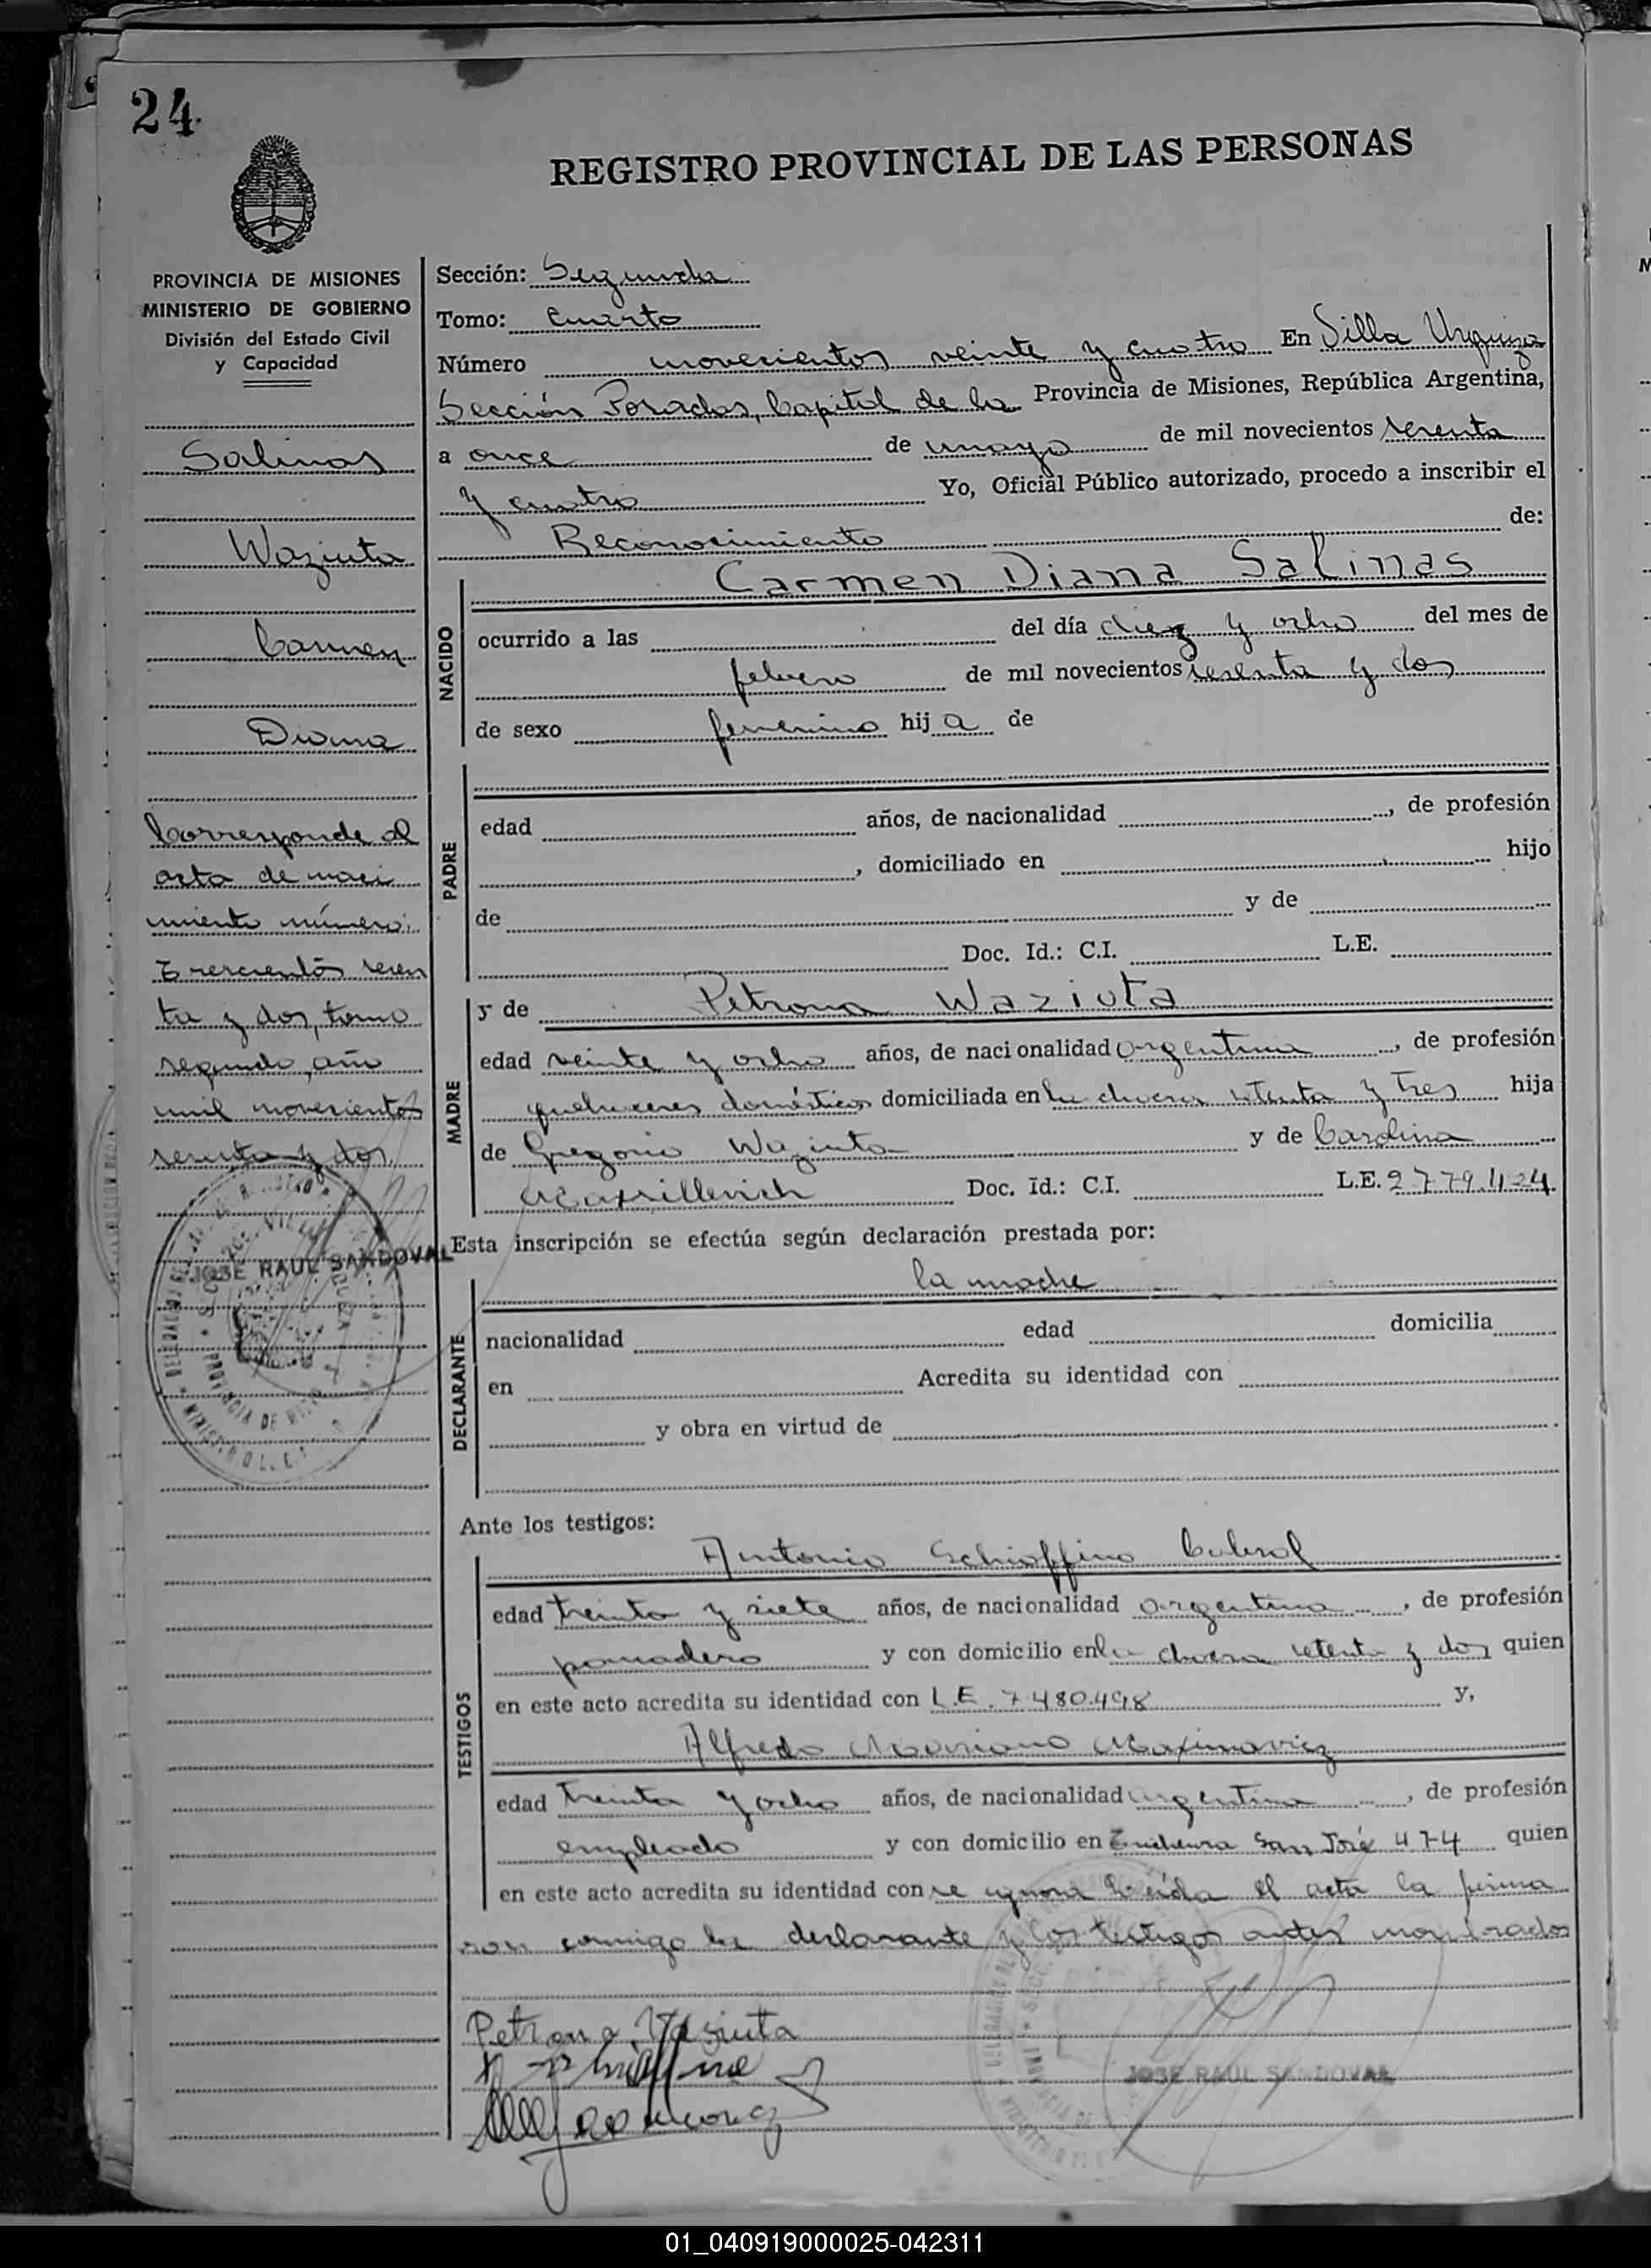 24
REGISTRO PROVINCIAL DE LAS PERSONAS
PROVINCIA DE MISIONES
MINISTERIO DE GOBIERNO
División del Estado Civil
y Capacidad
Salinas
Waziuta
Carmen
Diana
Corresponde al
acta de naci
miento número
Trescientos sesen
ta y dos, tomo
segundo, año
mil novecientos
sesenta y dos.
JOSE RAUL SANDOVAL
Sección: Segunda
Tomo: Cuarto
Número novecientos veinte y cuatro En Villa Urquiza
Sección Posadas, Capital de la Provincia de Misiones, República Argentina,
a once de mayo de mil novecientos sesenta
y cuatro Yo, Oficial Público autorizado, procedo a inscribir el
Reconocimiento de:
NACIDO
Carmen Diana Salinas
ocurrido a las del día diez y ocho del mes de
febrero de mil novecientos sesenta y dos
de sexo femenino hija de
PADRE
edad años, de nacionalidad , de profesión
, domiciliado en hijo
de y de
Doc. Id.: C.I. L.E.
MADRE
y de Petrona Waziuta
edad veinte y ocho años, de nacionalidad argentina , de profesión
quehaceres domésticos domiciliada en la chacra setenta y tres hija
de Gregorio Waziuta y de Carolina
Doc. Id.: C.I. L.E. 2.779.424
Esta inscripción se efectúa según declaración prestada por:
DECLARANTE
la madre
nacionalidad edad domicilia
en Acredita su identidad con
y obra en virtud de
Ante los testigos:
TESTIGOS
Antonio Schiaffino Cabral
edad treinta y siete años, de nacionalidad argentina , de profesión
panadero y con domicilio en la chacra setenta y dos quien
en este acto acredita su identidad con L.E. 7.480.498 y,
Alfredo Mariano Maximaviez
edad treinta y ocho años, de nacionalidad argentina , de profesión
empleado y con domicilio en San José 474 quien
en este acto acredita su identidad con se ignora leída el acta la firma
ron conmigo la declarante y los testigos antes nombrados
Petrona Waziuta
JOSE RAUL SANDOVAL
01_040919000025-042311